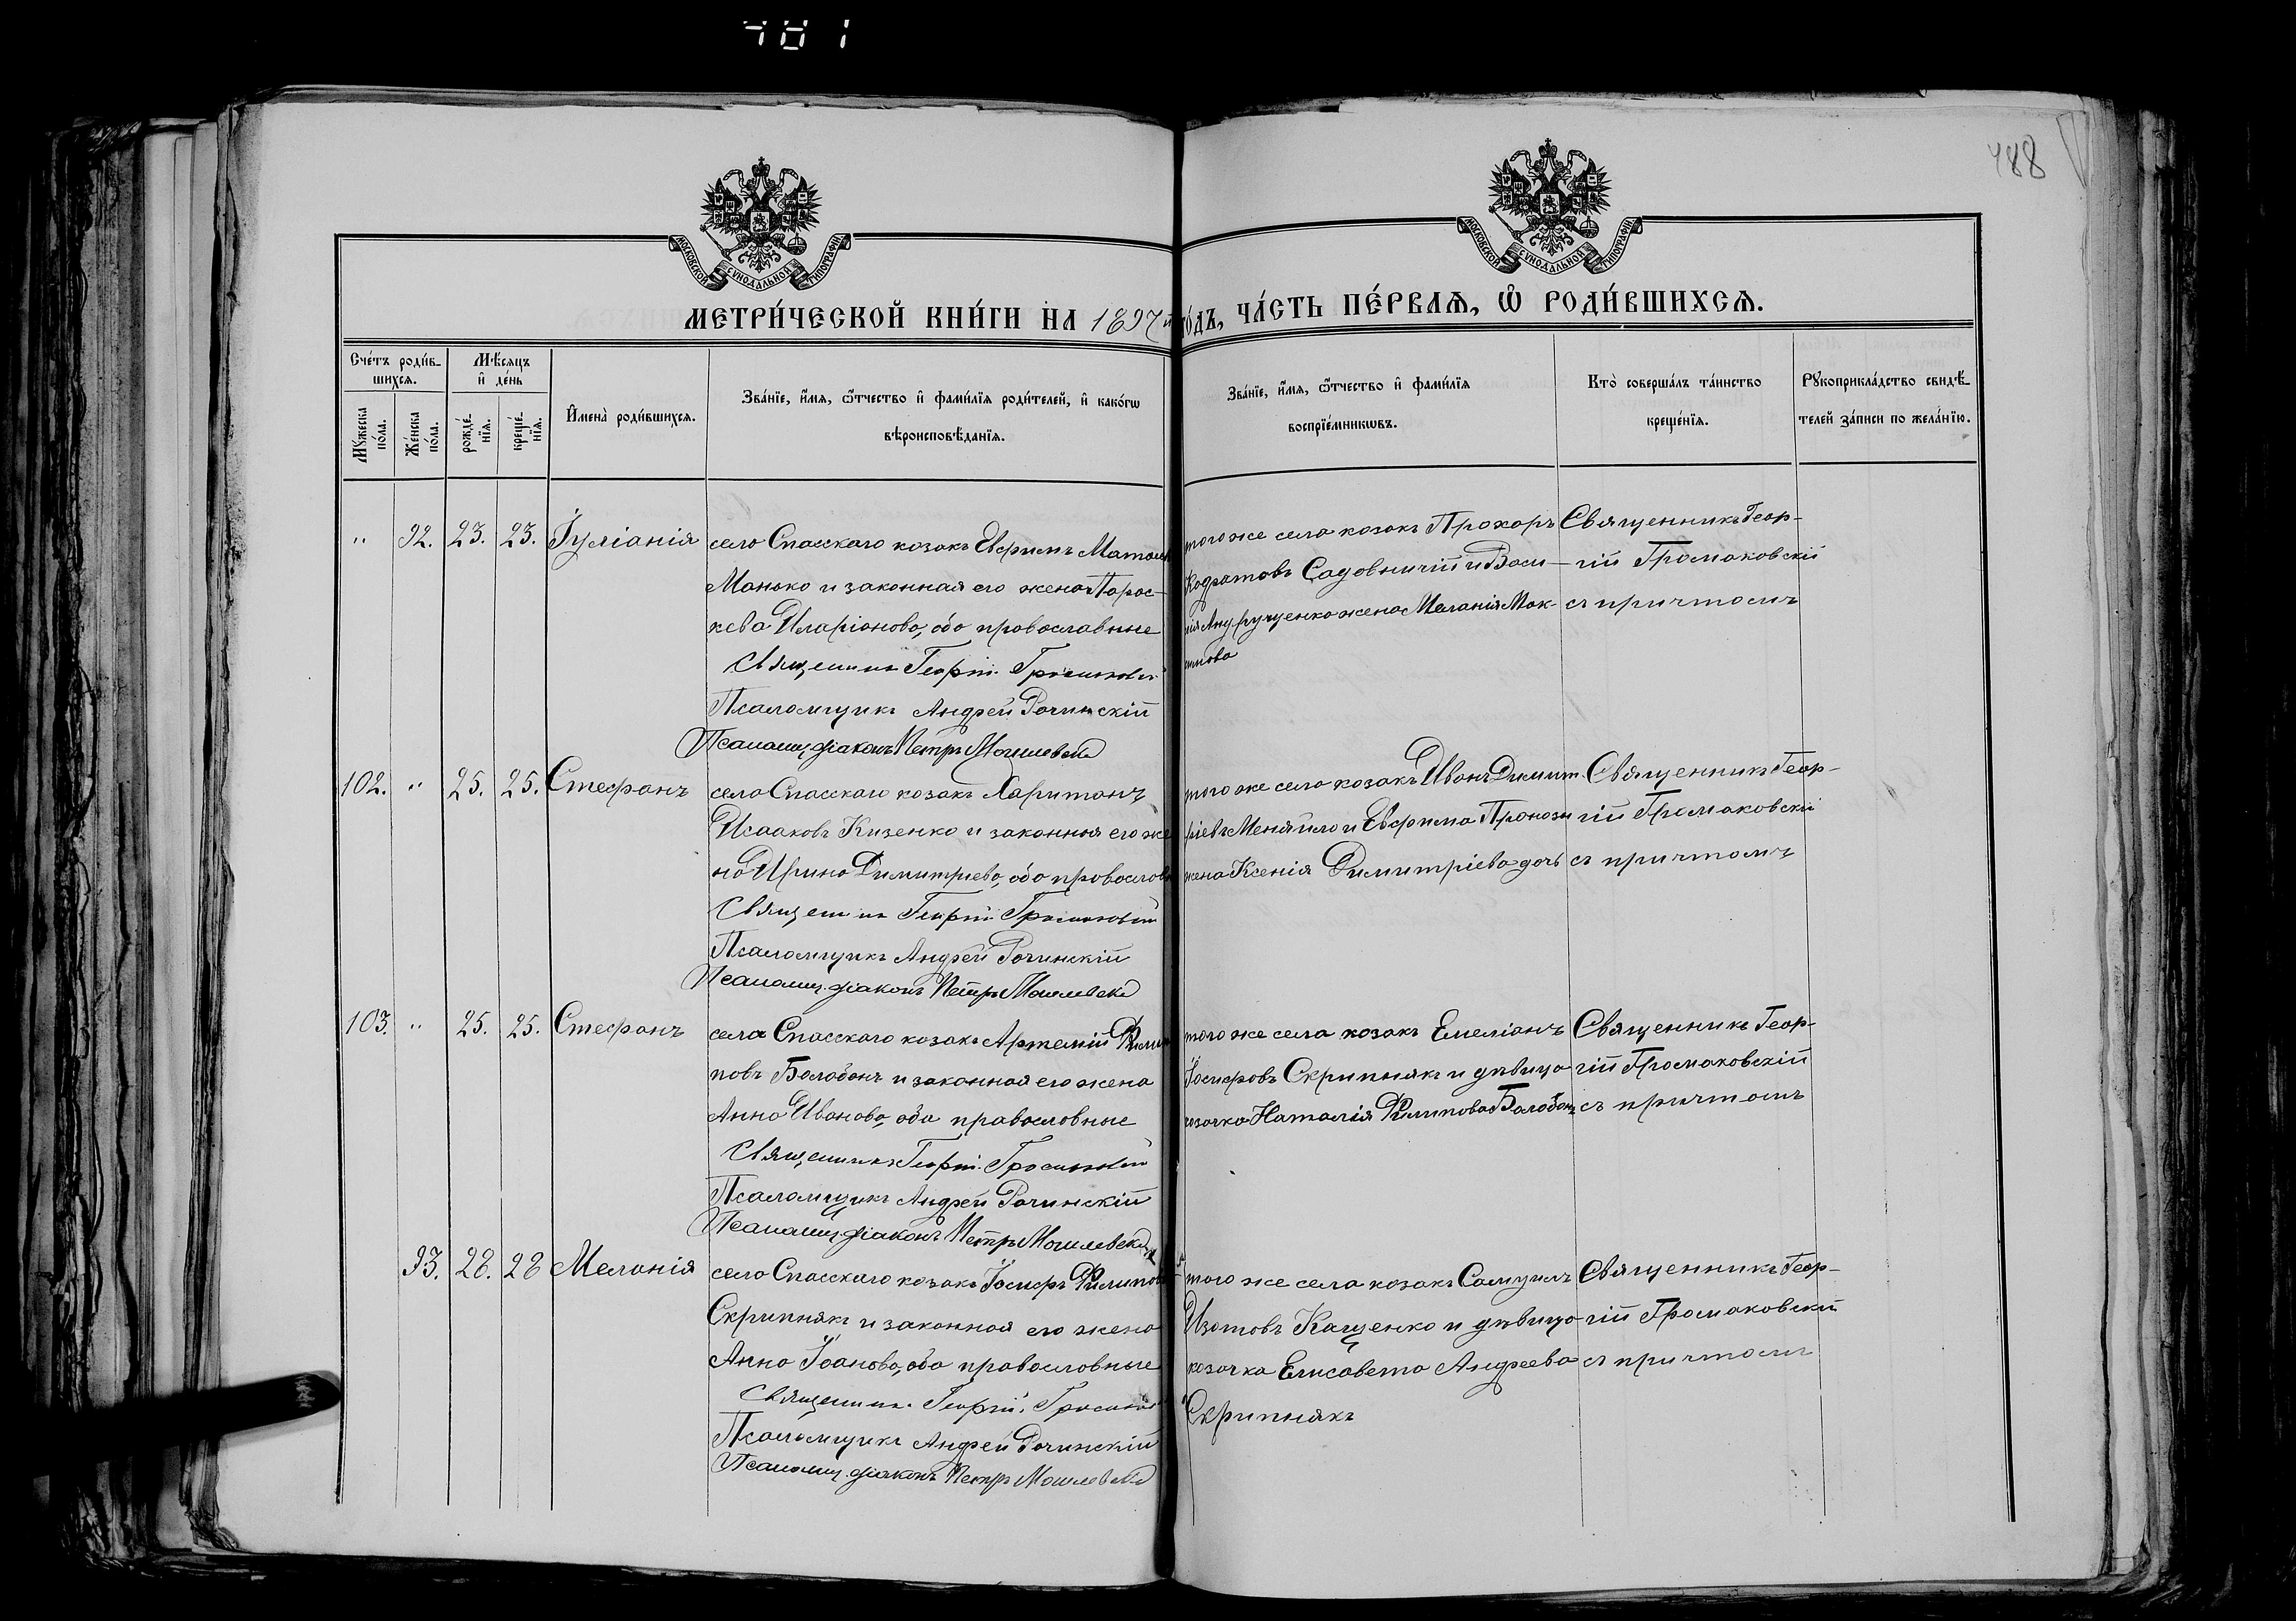 481
488
МОСКОВСКОЙ СѴНОДАЛЬНОЙ ТИПОГРАФІИ
МОСКОВСКОЙ СѴНОДАЛЬНОЙ ТИПОГРАФІИ
МЕТРИ́ЧЕСКОЙ КНИ́ГИ НА 1897 й го́дъ, ЧА́СТЬ ПЕ́РВАЯ, Ѡ҆ РОДИ́ВШИХСЯ.
Сче́тъ роди́в-
шихся.
Мꙋжеска по́ла.
Же́нска по́ла.
Мѣ́сяцъ и҆ де́нь
рожде́-нїя.
креще́-нїя.
И҆мена̀ роди́вшихся.
Зва́нїе, и҆́мя, ѻ҆́тчество и҆ фами́лїя роди́телей, и҆ како́гѡ
вѣроисповѣ́данїя.
Зва́нїе, и҆́мя, ѻ҆́тчество и҆ фами́лїя
воспрїе́мникѡвъ.
Кто̀ соверша́лъ та́инство
креще́нїя.
Рꙋкоприкла́дство свидѣ́-
телей за́писи по жела́нїю.
" 92. 23. 23. Іуліанія
села Спасскаго козакъ Евфимъ
Манько и законная его жена Парас-
кева Иларіонова, оба православные
Священникъ Георгій
Псаломщикъ Андрей Рачинскій
Псаломщ. діаконъ Петръ Могилевскій
того же села козакъ Прохоръ
Кодратовъ Садовничій и
жена Меланія Мак-
симова
Священникъ Геор-
гій Громаковскій
съ причтомъ
102. " 25. 25. Стефанъ
села Спасскаго козакъ Харитонъ
Исааковъ Кизенко и законная его же
на Ирина Димитріева, оба православн
Священникъ Георгій
Псаломщикъ Андрей Рачинскій
Псаломщ. діаконъ Петръ Могилевскій
того же села козакъ Иванъ Димит
ріевъ Меняйло и Евфима
жена Ксенія Димитріева дочь
Священникъ Геор-
гій Громаковскій
съ причтомъ
103. " 25. 25. Стефанъ
села Спасскаго козакъ Артемій Филип
повъ Балабанъ и законная его жена
Анна Иванова, оба православные
Священникъ Георгій
Псаломщикъ Андрей Рачинскій
Псаломщ. діаконъ Петръ Могилевскій
того же села козакъ Емеліанъ
Іосифовъ Скрипнякъ и дѣвица
козачка Наталія Филипова Балабанъ
Священникъ Геор-
гій Громаковскій
съ причтомъ
93. 28. 28 Меланія
села Спасскаго козакъ Іосифъ Филиповъ
Скрипнякъ и законная его жена
Анна Іоанова, оба православные
Священникъ Георгій
Псаломщикъ Андрей Рачинскій
Псаломщ. діаконъ Петръ Могилевскій
того же села козакъ Самуилъ
Изотовъ Кащенко и дѣвица
козачка Елисавета Андреева
Скрипнякъ
Священникъ Геор-
гій Громаковскій
съ причтомъ